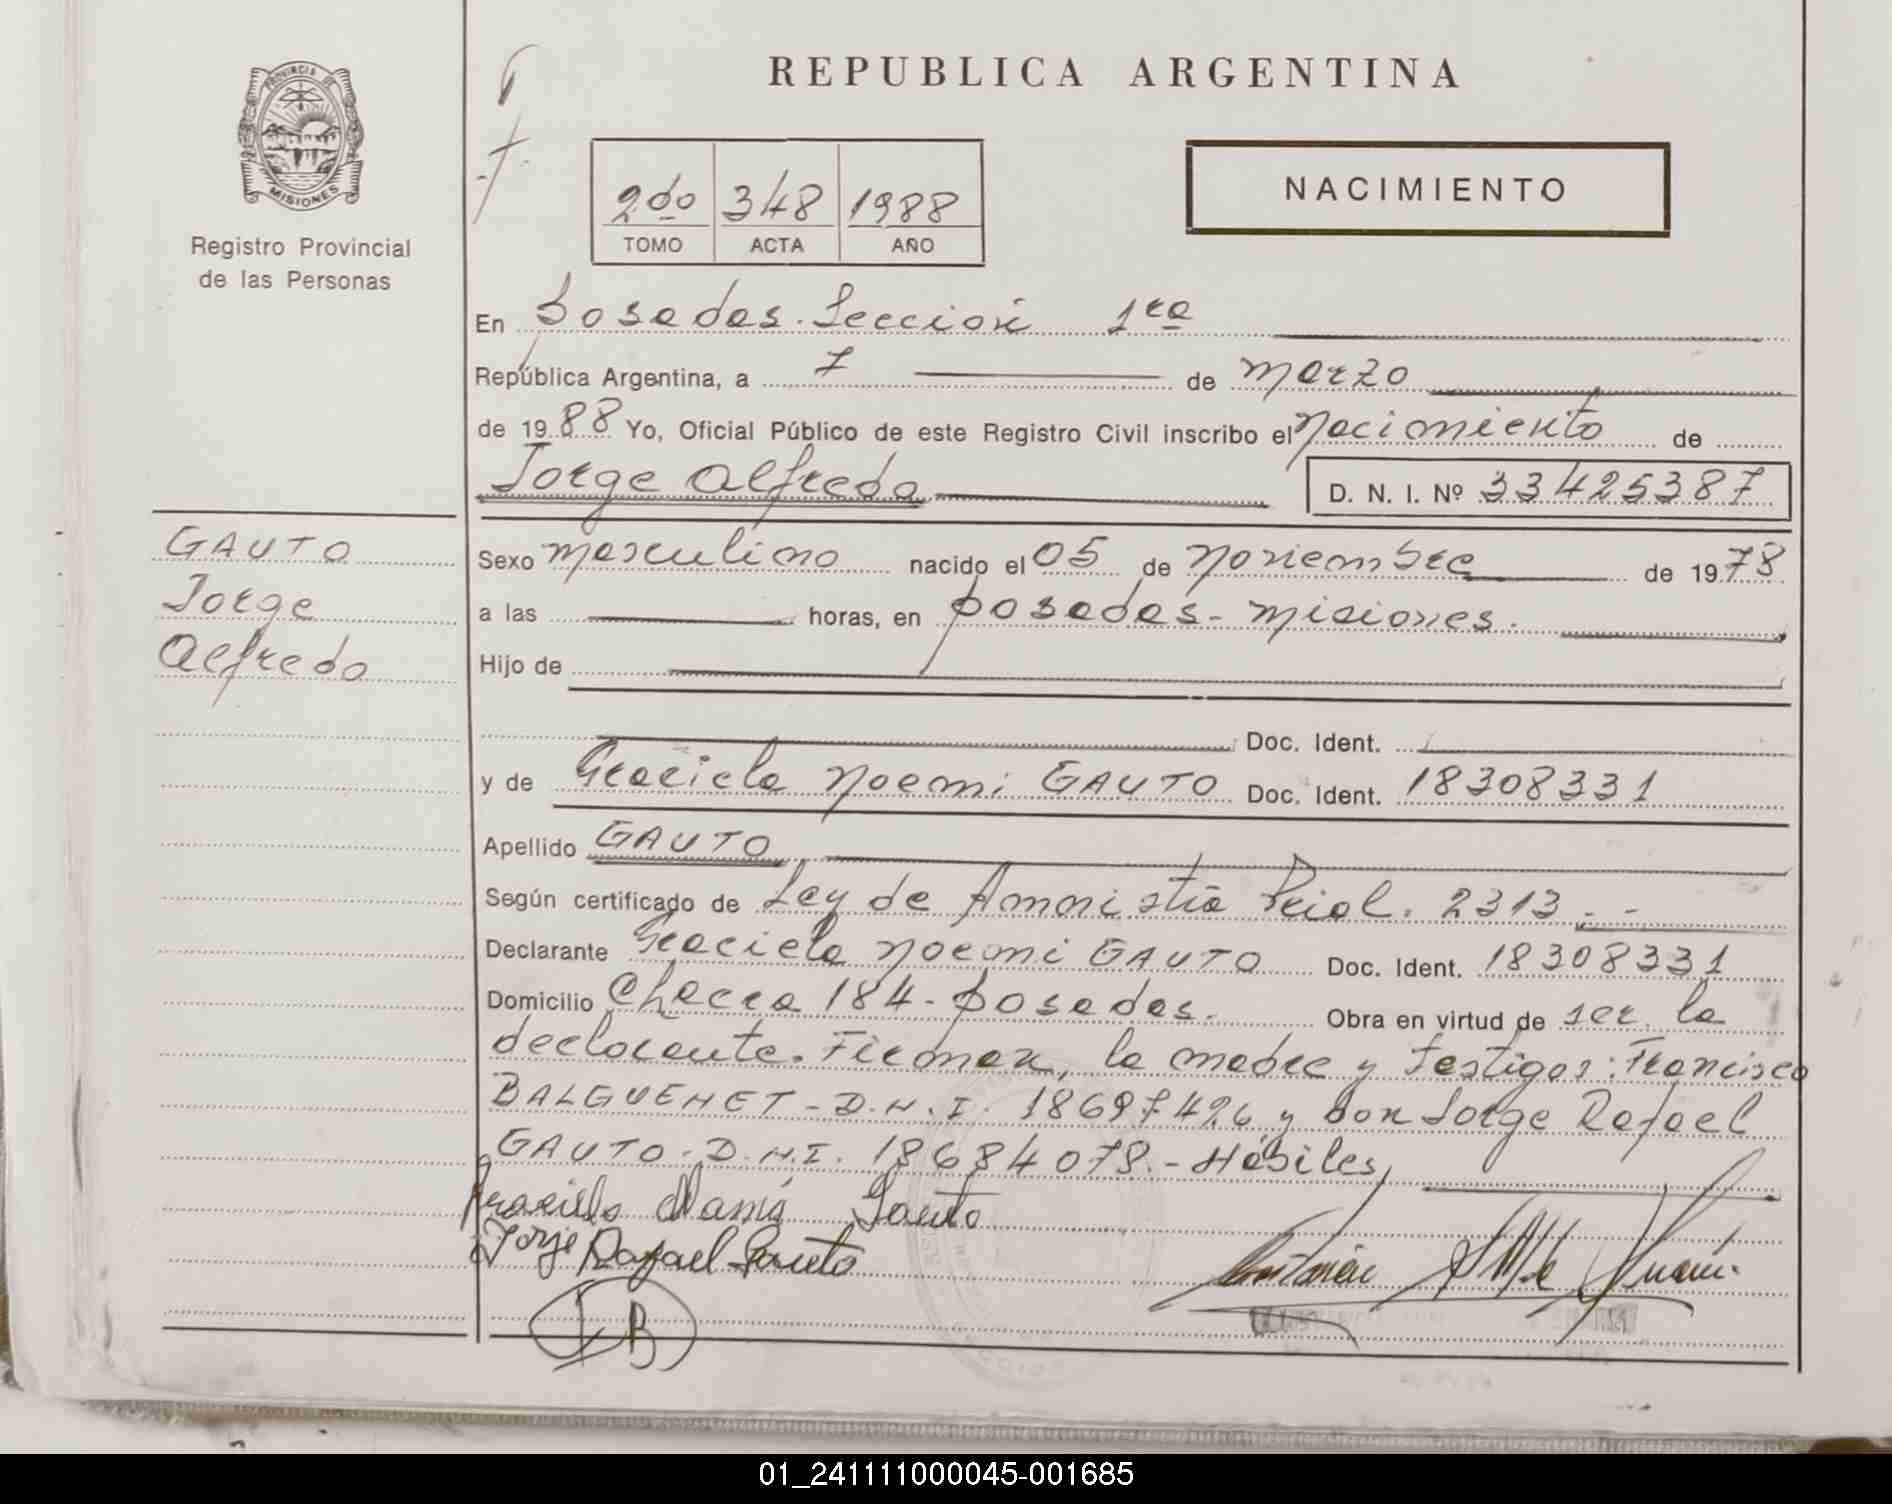 REPUBLICA ARGENTINA
PROVINCIA DE
MISIONES
Registro Provincial
de las Personas
2do 348 1988
TOMO ACTA AÑO
NACIMIENTO
En Posadas. Sección 1ra
República Argentina, a 7 de marzo
de 1988 Yo, Oficial Público de este Registro Civil inscribo el Nacimiento de
Jorge Alfredo D. N. I. Nº 33425387
GAUTO
Jorge
Alfredo
Sexo masculino nacido el 05 de noviembre de 1978
a las horas, en posadas - misiones.
Hijo de
Doc. Ident.
y de Graciela Noemi GAUTO Doc. Ident. 18308331
Apellido GAUTO
Según certificado de Ley de Amnistia Pcial. 2313.-
Declarante Graciela Noemi GAUTO Doc. Ident. 18308331
Domicilio Chacra 184 - posadas. Obra en virtud de ser la
declarante. Firman, la madre y testigos: Francisco
BALGUENET - D.N.I. 18697426 y don Jorge Rafael
GAUTO - D.N.I. 18684078.- Hábiles,
Gauto
Jorje Rafael Gauto
B
01_241111000045-001685